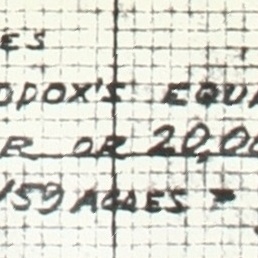 ES
ODOX'S EQUA
R OR 20,00
159 ACRES =